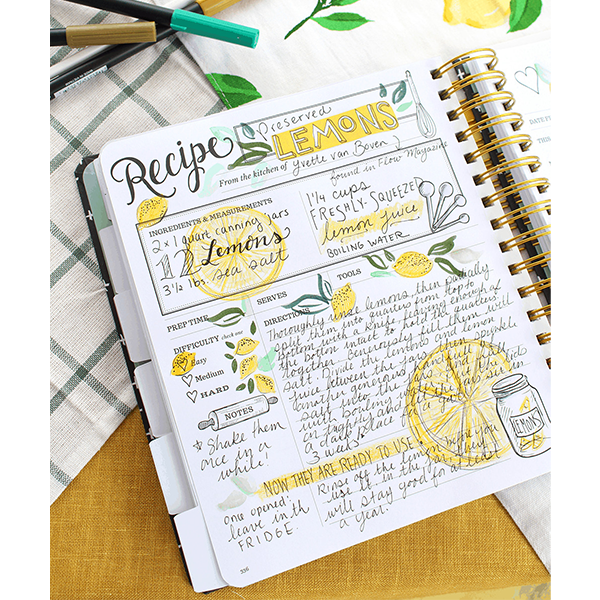 Recipe
Preserved
LEMONS
From the kitchen of Yvette van Boven
found in Flow Magazine
INGREDIENTS & MEASUREMENTS
2 x 1 quart canning jars
12 Lemons
3 1/2 lbs. sea salt
1 1/4 cups
FRESHLY-SQUEEZED
lemon juice
BOILING WATER
PREP TIME
SERVES
TOOLS
DIFFICULTY check one
Easy
Medium
HARD
NOTES
* Shake them
once in a
while!
Once opened:
leave in the
FRIDGE.
DIRECTIONS
Thoroughly rinse lemons then partially
split them into quarters from top to
bottom with a knife leaving enough of
the bottom intact to hold the quarters
together. Generously fill them with
salt. Divide the lemons and lemon
juice between the jars. Sprinkle
another generous handful of
salt into
3 weeks.
NOW THEY ARE READY TO USE
before you
Rinse off the lemons
use it in the jar it
will stay good for at least
a year.
LEMONS
336
DATE
THIS